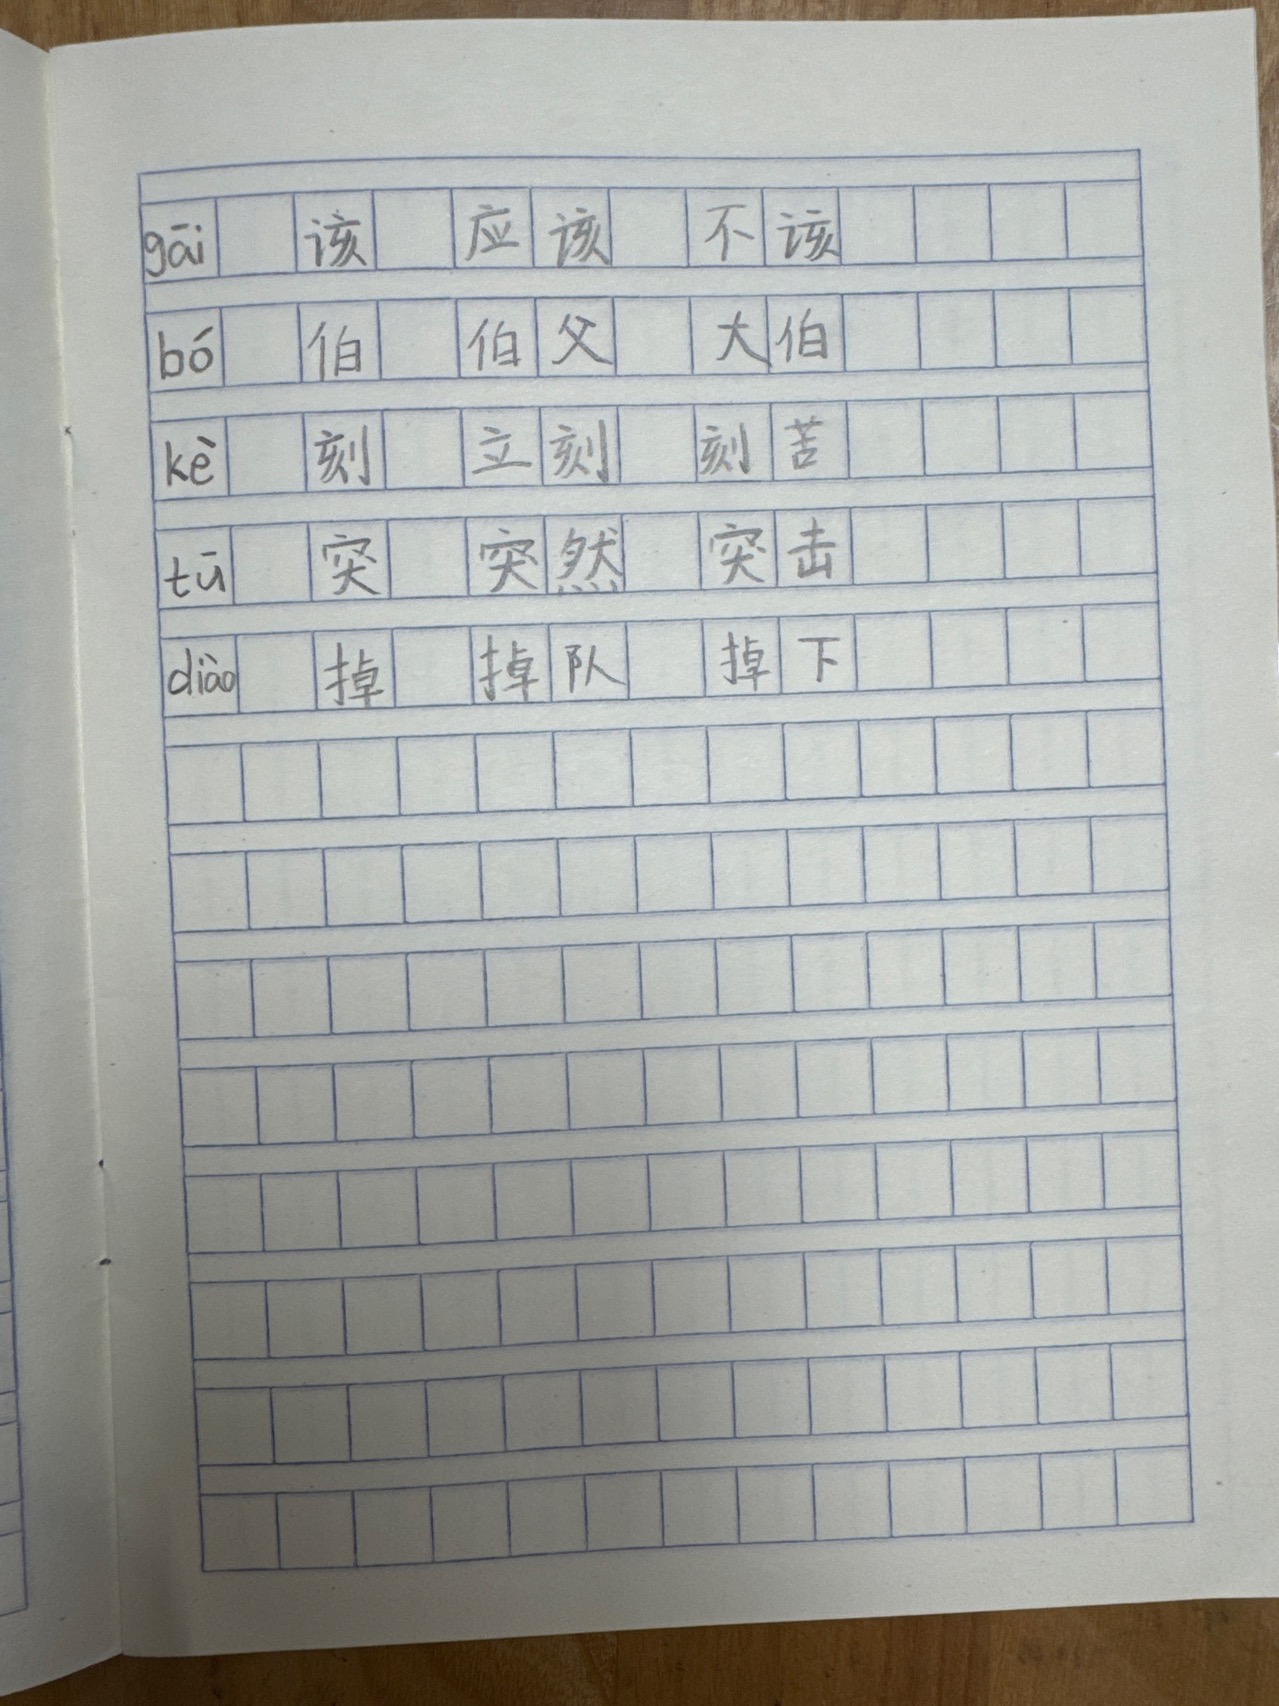 gāi 该 应该 不该
bó 伯 伯父 大伯
kè 刻 立刻 刻苦
tū 突 突然 突击
diào 掉 掉队 掉下